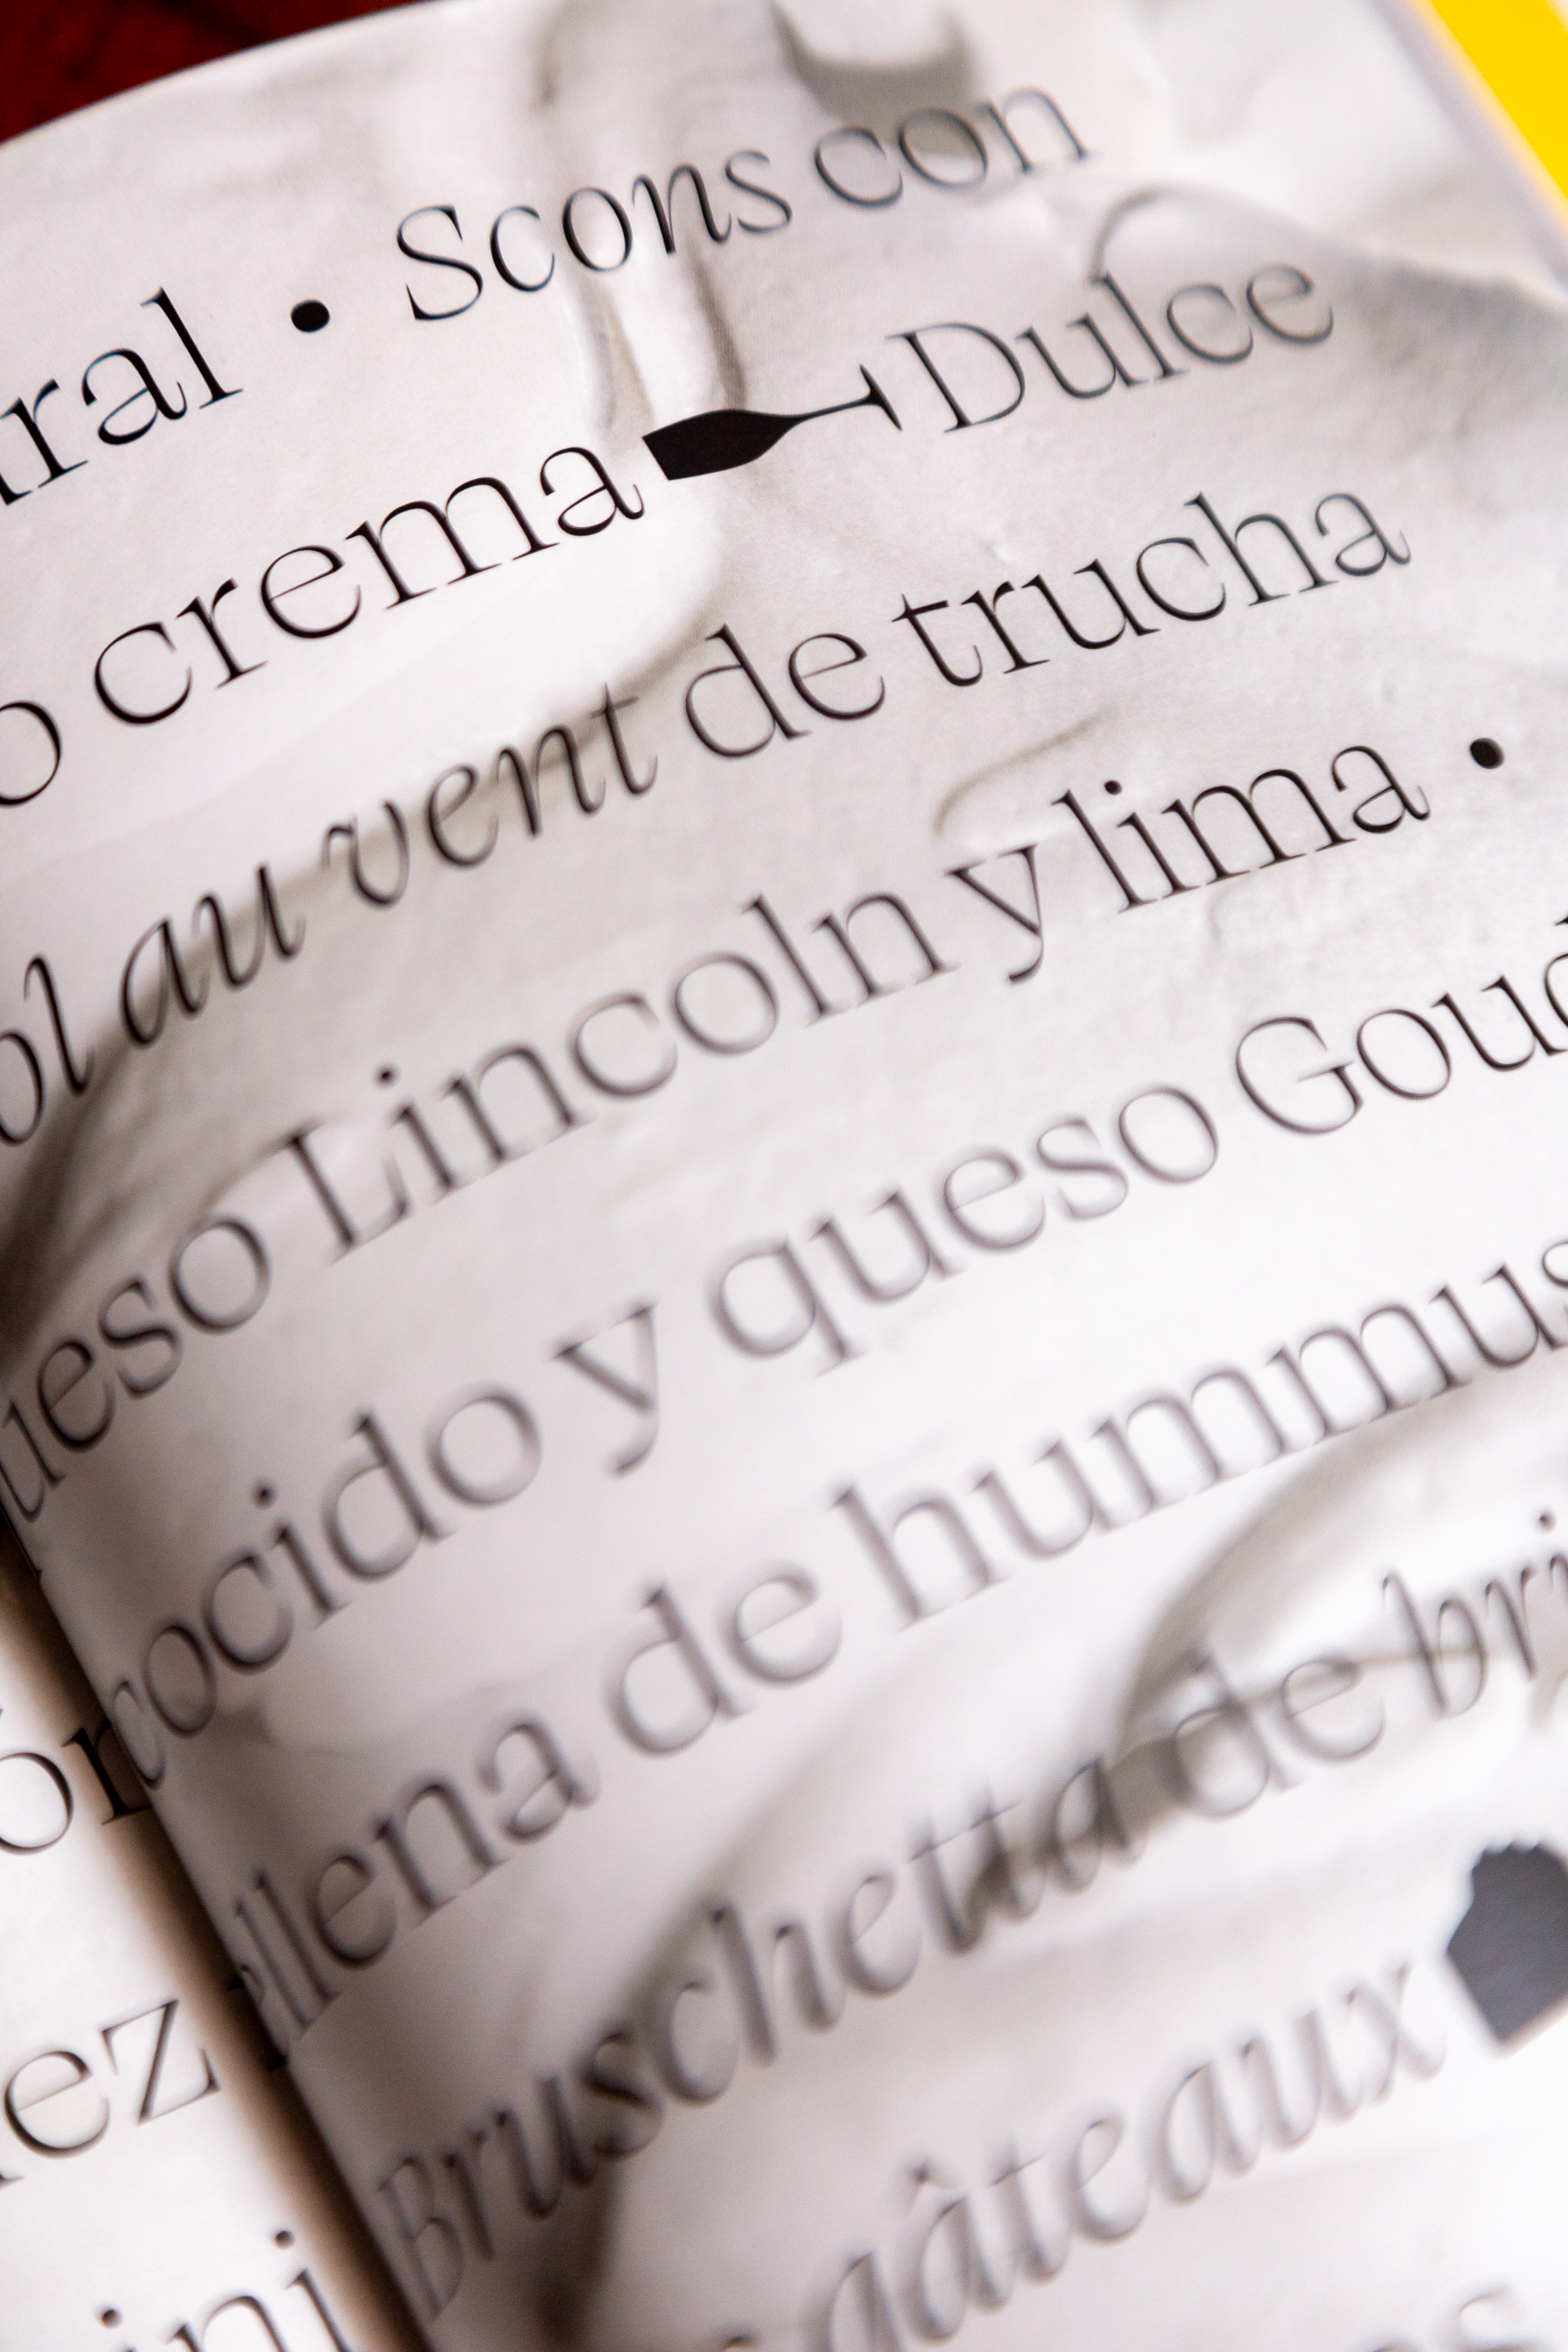 ral • Scons con
o crema Dulce
ol au vent de trucha
ueso Lincoln y lima •
ocido y queso Goud
llena de hummus
Bruschetta de bri
gâteaux
ez
ini